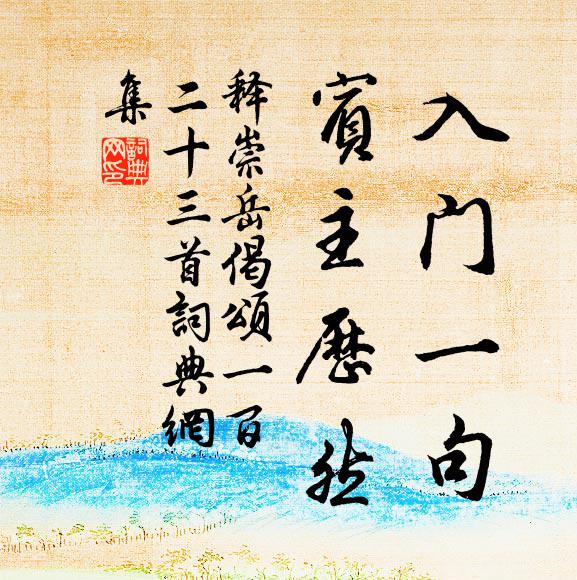 入门一句
賓主歷然
释崇岳偈頌一百
二十三首詞典網
集
詞典
网印